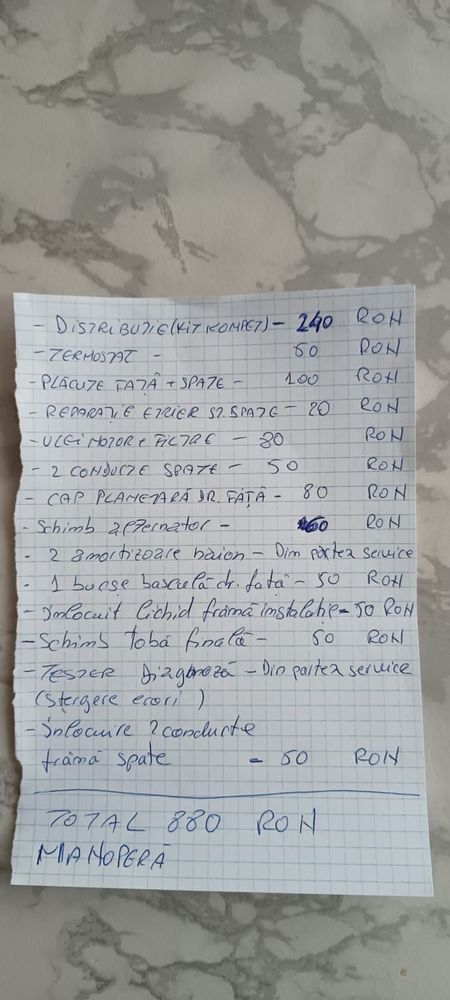 - DISTRIBUȚIE (KIT KOMPET) - 240 RON
- TERMOSTAT - 50 RON
- PLĂCUȚE FAȚĂ + SPATE - 100 RON
- REPARAȚIE ETRIER ST. SPATE - 20 RON
- ULEI MOTOR + FILTRE - 80 RON
- 2 CONDUCTE SPATE - 50 RON
- CAP PLANETARĂ DR. FAȚĂ - 80 RON
- Schimb alternator - RON
- 2 amortizoare haion - Din partea service
- 1 bucșe basculă dr. față - 50 RON
- Înlocuit lichid frână instalație - 50 RON
- Schimb tobă finală - 50 RON
- TESTER Diagnoză - Din partea service
(ștergere erori)
- Înlocuire 2 conducte
frână spate = 50 RON
TOTAL 880 RON
MANOPERĂ